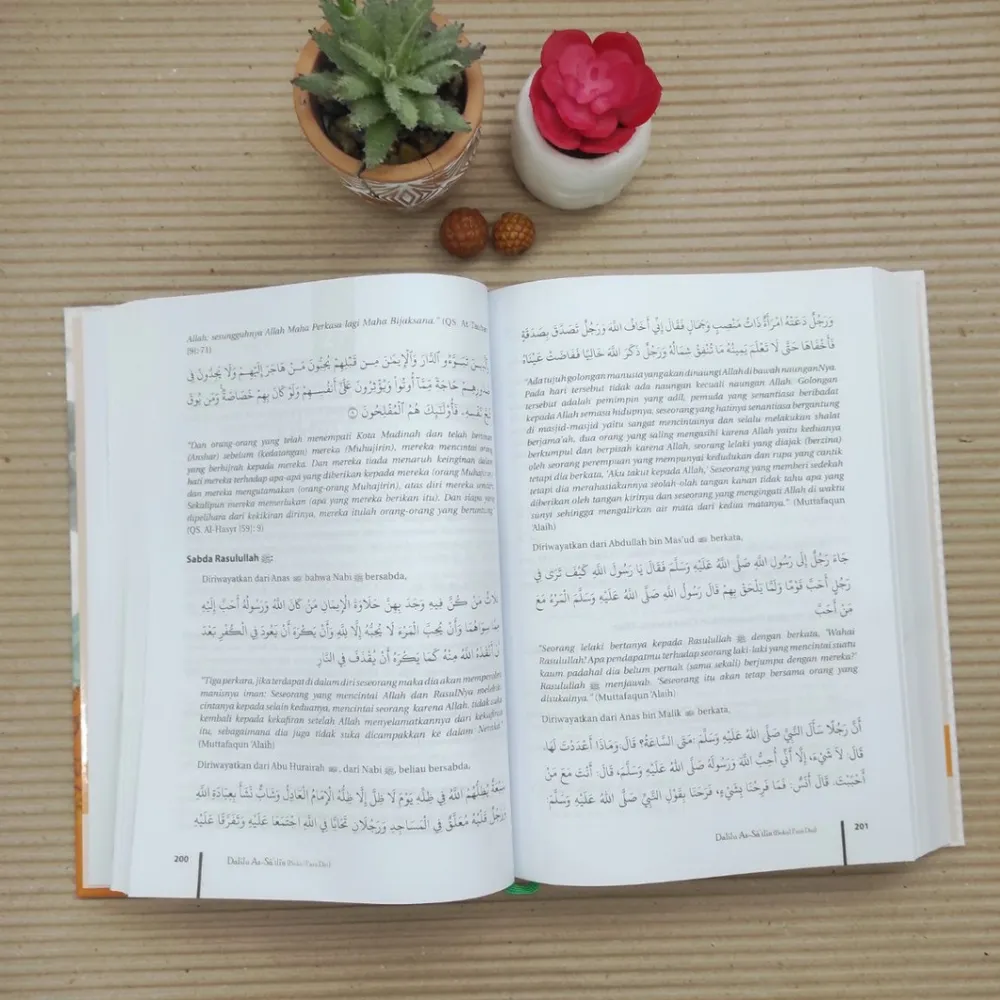 Allah. sesungguhnya Allah Maha Perkasa lagi Maha Bijaksana." (QS. At-Taubah
[9]: 71)
تَبَوَّءُو ٱلدَّارَ وَٱلْإِيمَٰنَ مِن قَبْلِهِمْ يُحِبُّونَ مَنْ هَاجَرَ إِلَيْهِمْ وَلَا يَجِدُونَ فِى
صُدُورِهِمْ حَاجَةً مِّمَّآ أُوتُوا۟ وَيُؤْثِرُونَ عَلَىٰٓ أَنفُسِهِمْ وَلَوْ كَانَ بِهِمْ خَصَاصَةٌ وَمَن يُوقَ
شُحَّ نَفْسِهِۦ فَأُو۟لَٰٓئِكَ هُمُ ٱلْمُفْلِحُونَ ۝
"Dan orang-orang yang telah menempati Kota Madinah dan telah beriman
(Anshar) sebelum (kedatangan) mereka (Muhajirin), mereka mencintai orang
yang berhijrah kepada mereka. Dan mereka tiada menaruh keinginan dalam
hati mereka terhadap apa-apa yang diberikan kepada mereka (orang Muhajirin),
dan mereka mengutamakan (orang-orang Muhajirin), atas diri mereka sendiri.
Sekalipun mereka memerlukan (apa yang mereka berikan itu). Dan siapa yang
dipelihara dari kekikiran dirinya, mereka itulah orang-orang yang beruntung"
(QS. Al-Hasyr [59]: 9)
Sabda Rasulullah ﷺ
Diriwayatkan dari Anas bahwa Nabi ﷺ bersabda,
ثَلَاثٌ مَنْ كُنَّ فِيهِ وَجَدَ بِهِنَّ حَلَاوَةَ الْإِيمَانِ مَنْ كَانَ اللَّهُ وَرَسُولُهُ أَحَبَّ إِلَيْهِ
مِمَّا سِوَاهُمَا وَأَنْ يُحِبَّ الْمَرْءَ لَا يُحِبُّهُ إِلَّا لِلَّهِ وَأَنْ يَكْرَهَ أَنْ يَعُودَ فِي الْكُفْرِ بَعْدَ
أَنْ أَنْقَذَهُ اللَّهُ مِنْهُ كَمَا يَكْرَهُ أَنْ يُقْذَفَ فِي النَّارِ
"Tiga perkara, jika terdapat di dalam diri seseorang maka dia akan memperoleh
manisnya iman: Seseorang yang mencintai Allah dan RasulNya melebihi
cintanya kepada selain keduanya, mencintai seorang karena Allah, tidak suka
kembali kepada kekafiran setelah Allah menyelamatkannya dari kekafiran
itu, sebagaimana dia juga tidak suka dicampakkan ke dalam Neraka"
(Muttafaqun 'Alaih)
Diriwayatkan dari Abu Hurairah , dari Nabi ﷺ, beliau bersabda,
سَبْعَةٌ يُظِلُّهُمُ اللَّهُ فِي ظِلِّهِ يَوْمَ لَا ظِلَّ إِلَّا ظِلُّهُ الْإِمَامُ الْعَادِلُ وَشَابٌّ نَشَأَ بِعِبَادَةِ اللَّهِ
وَرَجُلٌ قَلْبُهُ مُعَلَّقٌ فِي الْمَسَاجِدِ وَرَجُلَانِ تَحَابَّا فِي اللَّهِ اجْتَمَعَا عَلَيْهِ وَتَفَرَّقَا عَلَيْهِ
200 Dalilu As-Sa'ilin (Bekal Para Dai)
وَرَجُلٌ دَعَتْهُ امْرَأَةٌ ذَاتُ مَنْصِبٍ وَجَمَالٍ فَقَالَ إِنِّي أَخَافُ اللَّهَ وَرَجُلٌ تَصَدَّقَ بِصَدَقَةٍ
فَأَخْفَاهَا حَتَّى لَا تَعْلَمَ يَمِينُهُ مَا تُنْفِقُ شِمَالُهُ وَرَجُلٌ ذَكَرَ اللَّهَ خَالِيًا فَفَاضَتْ عَيْنَاهُ
"Ada tujuh golongan manusia yang akan dinaungi Allah di bawah naunganNya.
Pada hari tersebut tidak ada naungan kecuali naungan Allah. Golongan
tersebut adalah pemimpin yang adil, pemuda yang senantiasa beribadat
kepada Allah semasa hidupnya, seseorang yang hatinya senantiasa bergantung
di masjid-masjid yaitu sangat mencintainya dan selalu melakukan shalat
berjama'ah, dua orang yang saling mengasihi karena Allah yaitu keduanya
berkumpul dan berpisah karena Allah, seorang lelaki yang diajak (berzina)
oleh seorang perempuan yang mempunyai kedudukan dan rupa yang cantik
tetapi dia berkata, 'Aku takut kepada Allah,' Seseorang yang memberi sedekah
tetapi dia merahasiakannya seolah-olah tangan kanan tidak tahu apa yang
diberikan oleh tangan kirinya dan seseorang yang mengingati Allah di waktu
sunyi sehingga mengalirkan air mata dari kedua matanya." (Muttafaqun
'Alaih)
Diriwayatkan dari Abdullah bin Mas'ud berkata,
جَاءَ رَجُلٌ إِلَى رَسُولِ اللَّهِ صَلَّى اللَّهُ عَلَيْهِ وَسَلَّمَ فَقَالَ يَا رَسُولَ اللَّهِ كَيْفَ تَرَى فِي
رَجُلٍ أَحَبَّ قَوْمًا وَلَمَّا يَلْحَقْ بِهِمْ قَالَ رَسُولُ اللَّهِ صَلَّى اللَّهُ عَلَيْهِ وَسَلَّمَ الْمَرْءُ مَعَ
مَنْ أَحَبَّ
"Seorang lelaki bertanya kepada Rasulullah ﷺ dengan berkata, 'Wahai
Rasulullah! Apa pendapatmu terhadap seorang laki-laki yang mencintai suatu
kaum padahal dia belum pernah (sama sekali) berjumpa dengan mereka?'
Rasulullah ﷺ menjawab. 'Seseorang itu akan tetap bersama orang yang
disukainya." (Muttafaqun 'Alaih)
Diriwayatkan dari Anas bin Malik berkata,
أَنَّ رَجُلًا سَأَلَ النَّبِيَّ صَلَّى اللَّهُ عَلَيْهِ وَسَلَّمَ :مَتَى السَّاعَةُ؟ قَالَ:وَمَاذَا أَعْدَدْتَ لَهَا،
قَالَ: لَا شَيْءَ، إِلَّا أَنِّي أُحِبُّ اللَّهَ وَرَسُولَهُ صَلَّى اللَّهُ عَلَيْهِ وَسَلَّمَ، قَالَ: أَنْتَ مَعَ مَنْ
أَحْبَبْتَ. قَالَ أَنَسٌ: فَمَا فَرِحْنَا بِشَيْءٍ، فَرَحَنَا بِقَوْلِ النَّبِيِّ صَلَّى اللَّهُ عَلَيْهِ وَسَلَّمَ:
Dalilu As-Sa'ilin (Bekal Para Dai) 201